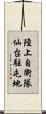 陸上自衛隊
仙台駐屯地